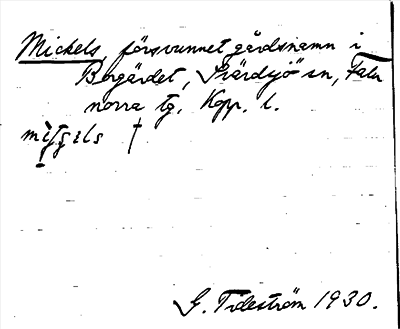 Mickels, försvunnet gårdsnamn i
Borgärdet, Svärdsjö sn, Falu
norra tg, Kopp. l.
G. Tideström 1930.